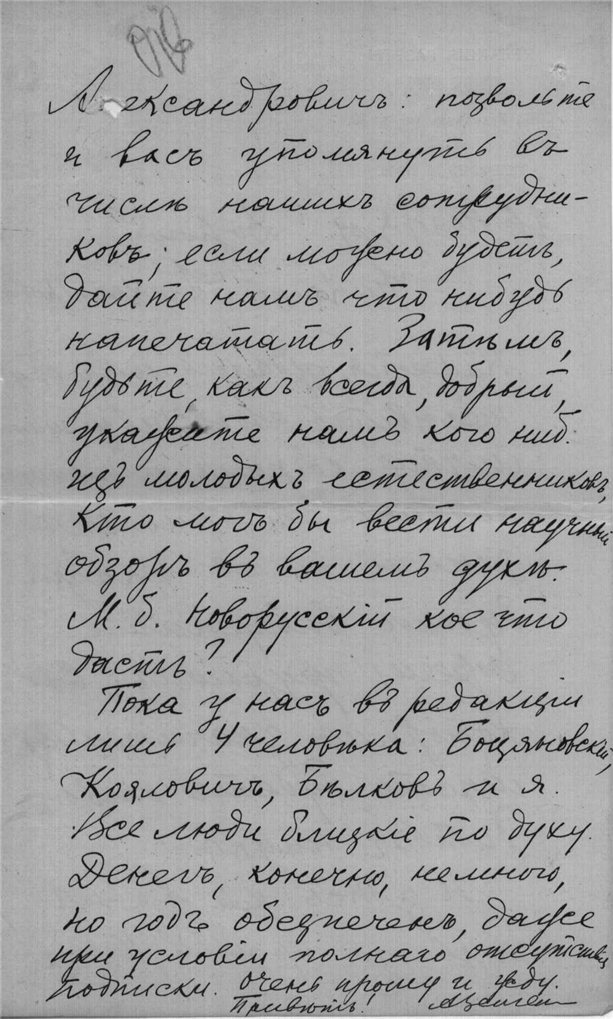 Александровичъ: позвольте
и васъ упомянуть въ
числѣ нашихъ сотрудни-
ковъ; если можно будетъ,
дайте намъ что нибудь
напечатать. Затѣмъ,
будьте, какъ всегда, добрый,
укажите намъ кого ниб.
изъ молодыхъ естественниковъ,
кто могъ бы вести научный
обзоръ въ вашемъ духѣ.
М. б. Новорусскій кое что
дастъ?
Пока у насъ въ редакціи
лишь 4 человѣка: Боцяновскій,
Кояловичъ, Бѣлковъ и я.
Все люди близкіе по духу.
Денегъ, конечно, немного,
но годъ обезпеченъ, даже
при условіи полнаго отсутствія
подписки. Очень прошу и жду.
Привѣтъ.